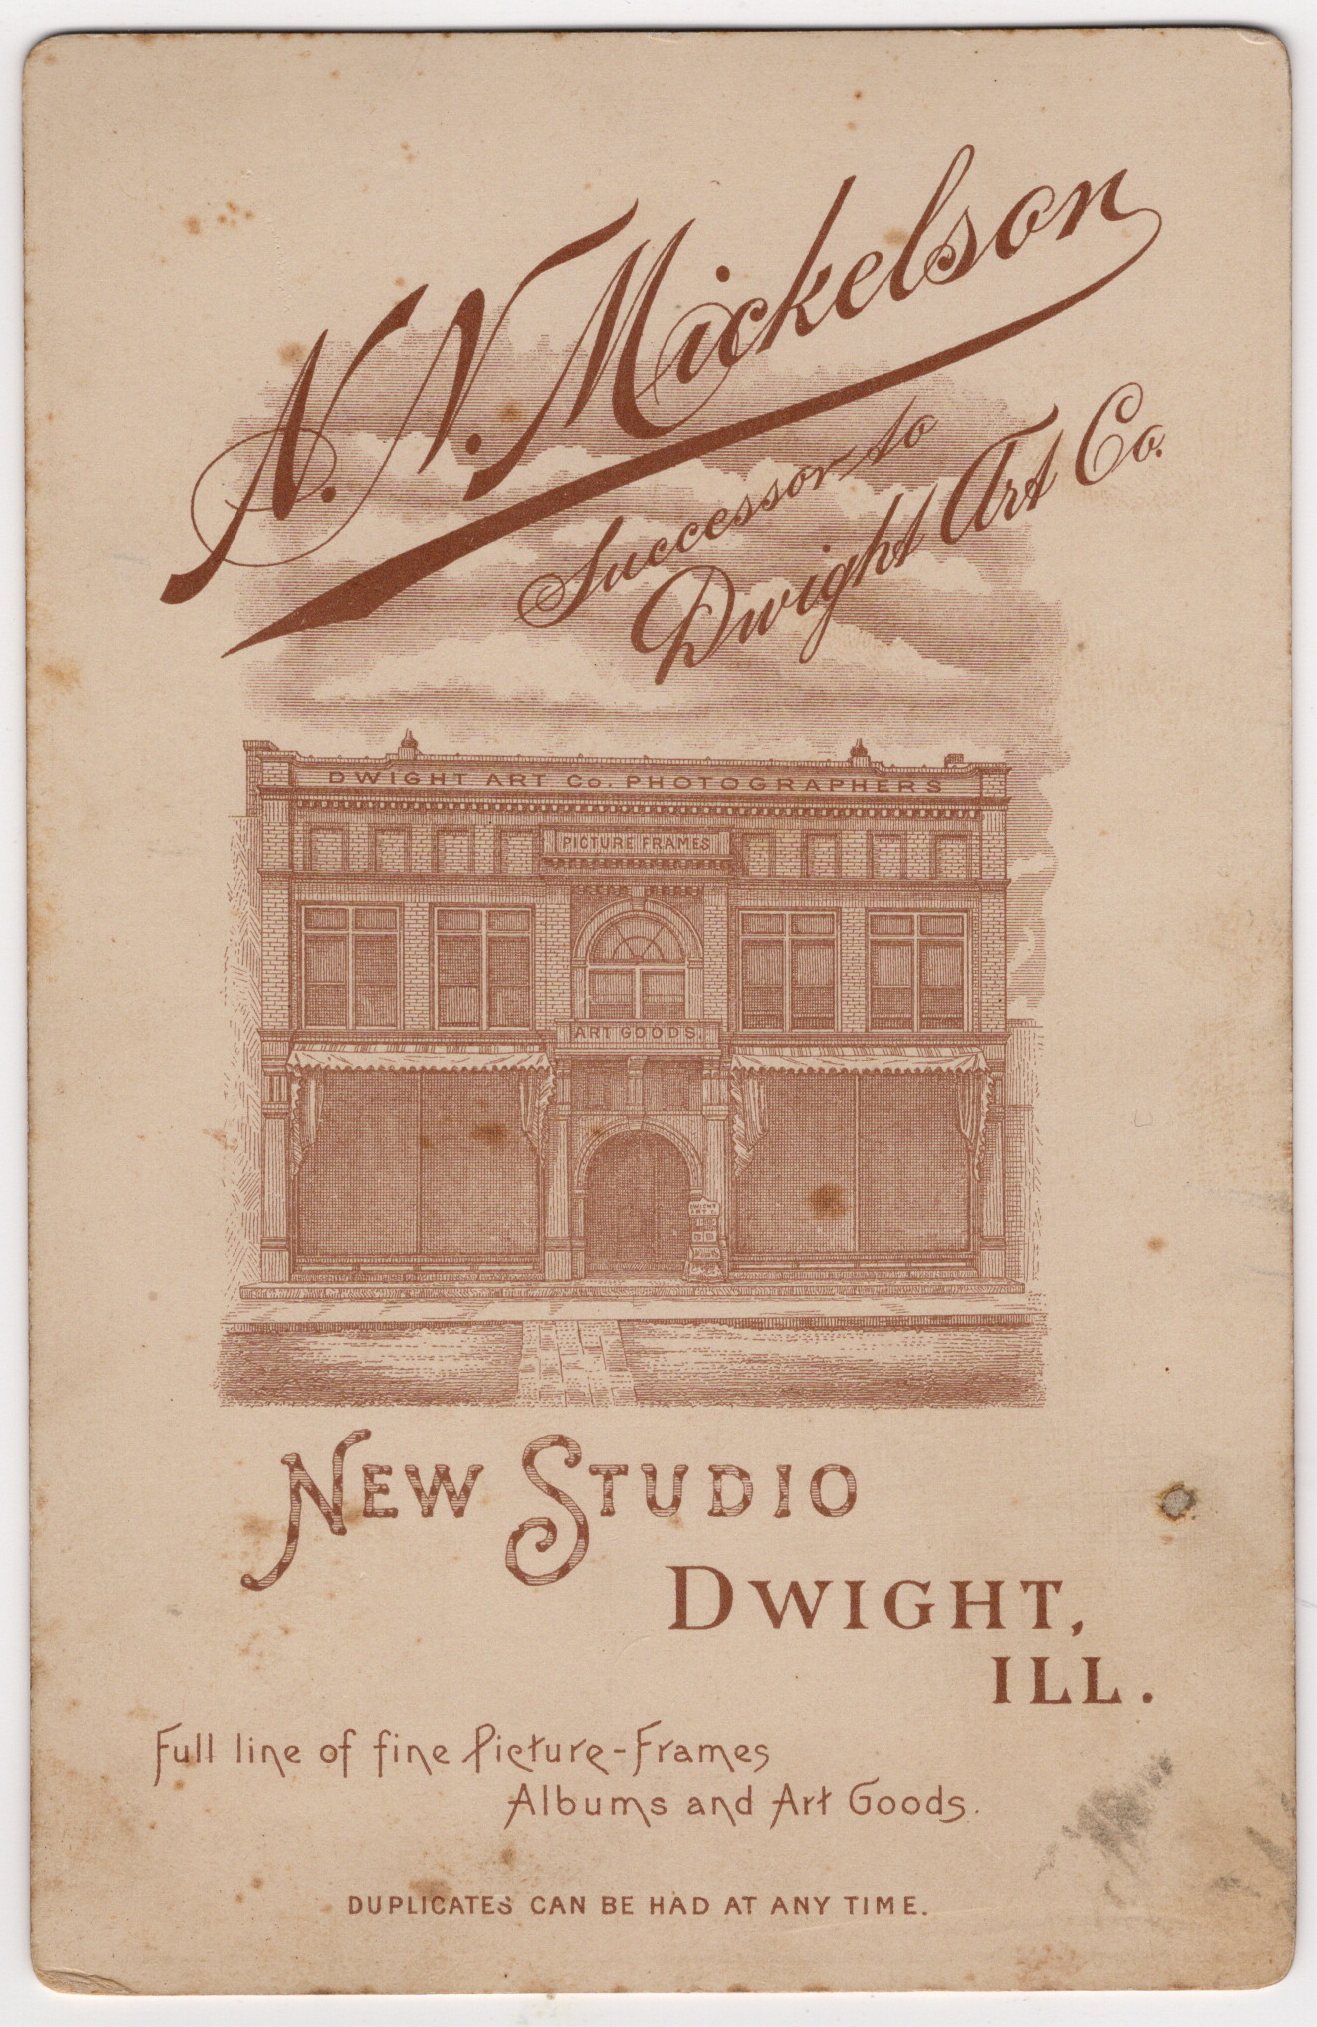 N. N. Mickelson
Successor to
Dwight Art Co.
DWIGHT ART CO. PHOTOGRAPHERS
PICTURE FRAMES
ART GOODS.
DWIGHT
ART C
NEW STUDIO
DWIGHT,
ILL.
Full line of fine Picture-Frames
Albums and Art Goods.
DUPLICATES CAN BE HAD AT ANY TIME.